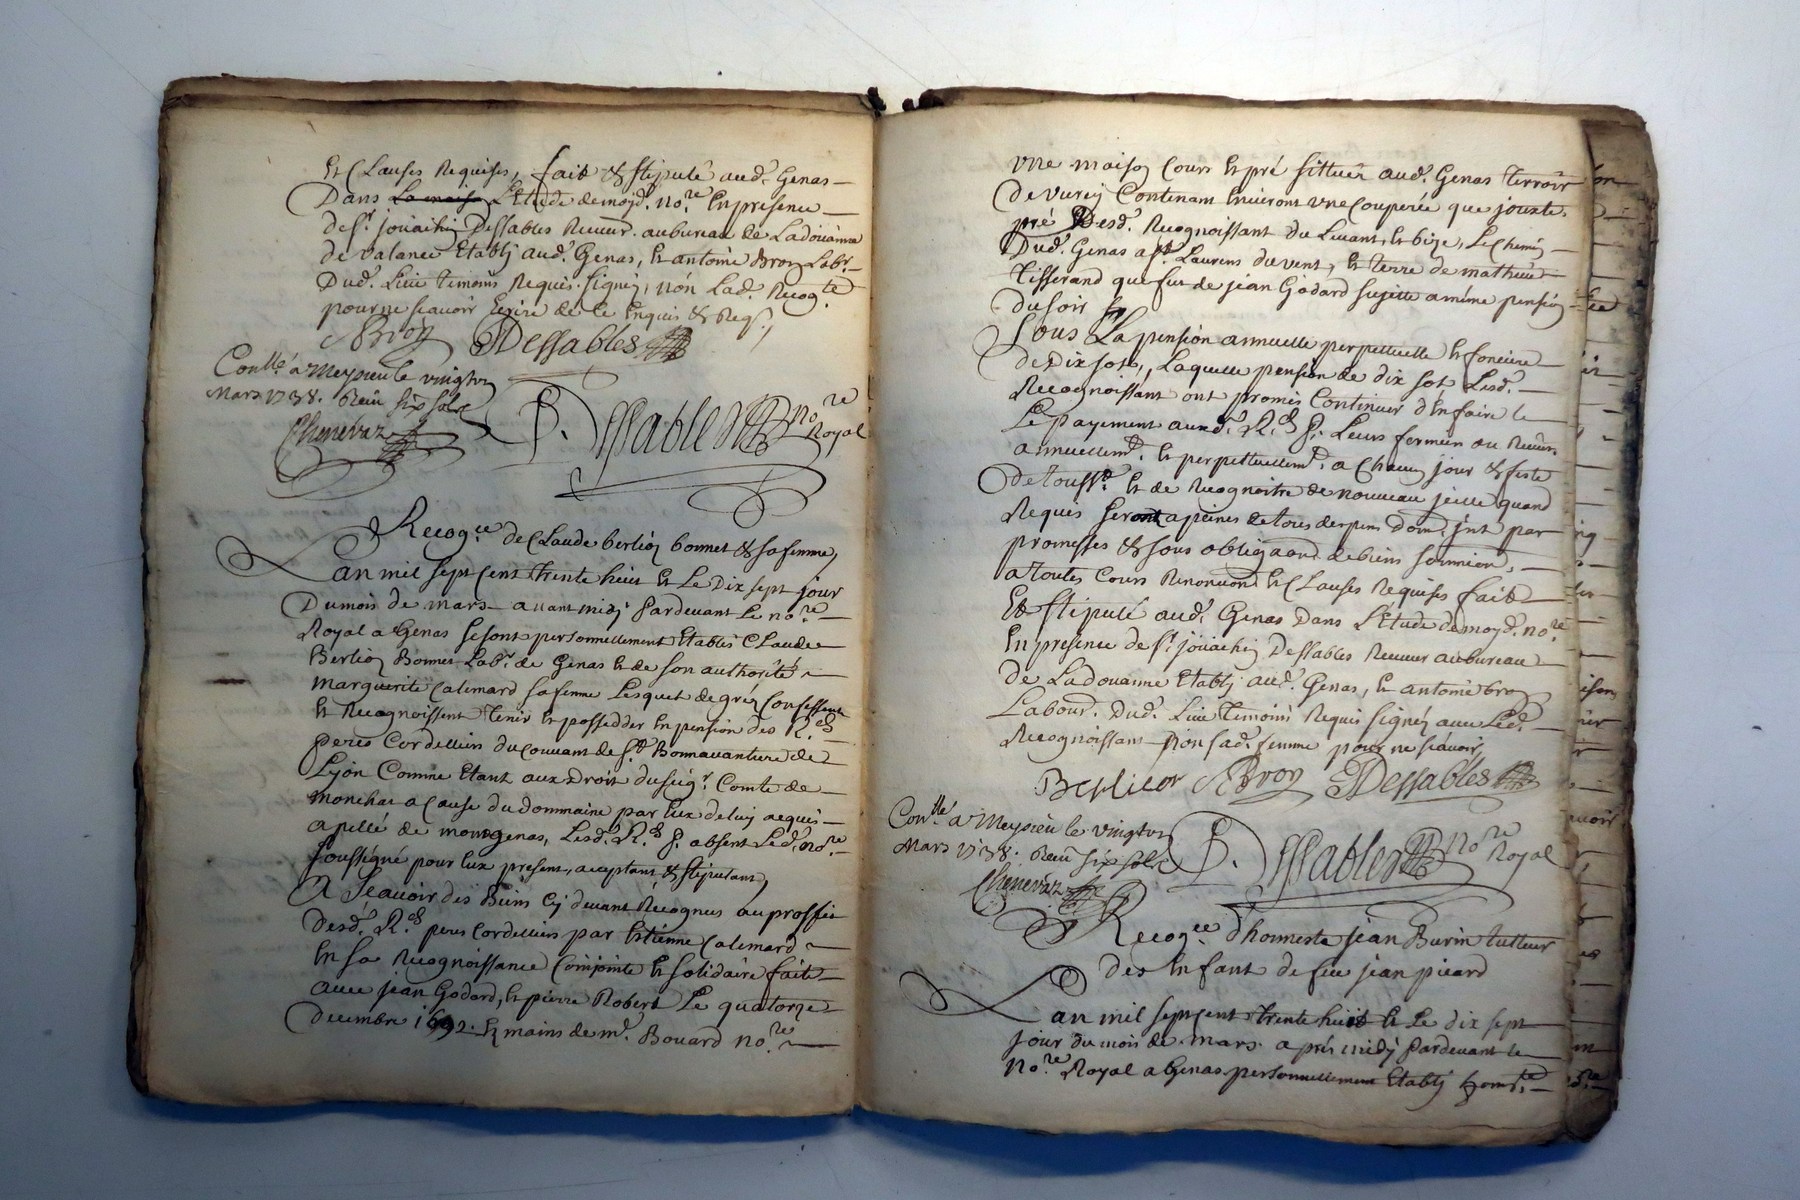 Et Clauses Requises, fait & stipulé aud. Genas
Dans La maison L'Etude de moyd. no.re En presence
de Sr. jouachin Dessables Receveur au bureau de La doüanne
de valance Etably aud. Genas, Et antoine Broy Labr.
Dud. Lieu temoins Requis. signéz, nón Lad. Recog.te
pour ne scavoir Ecrire de ce Enquis & Req.
Broy Dessables
Con.llé a Meyzieu le vingt
Mars 1738. Receu six sols
Chenevaz
Dessables no.re Royal
Recog.ce de Claude berlioz bonnet & sa femme
Lan mil sept cent trente huit Et Le Dix sept jour
Du mois de mars avant midy Pardevant Le no.re
Royal a Genas se sont personnellement Etablis Claude
Berlioz Bonnet Labr. de Genas Et de son authorité
marguerite Calemard sa femme Lesquel de gréz Confessent
Et Recognoissent tenir Et possedder En pension des R.ds
peres Cordelliers du Couvant de St. Bonnavanture de
Lyón Comme Etant aux Droit du seigr. Comte de
monchat a Cause du dommaine par Eux de luy acquis
apellé de mongenas, Lesd. R.ds P. absent Led. no.re
soussigné pour Eux present, aceptant & stipulant,
A Scavoir des Biens Cy devant Recognus au proffit
Desd. R.ds peres Cordelliers par Estienne Calemard
En sa Recognoissance Conjointe Et solidaire faite
avec jean Godard, Et pierre Robert Le quatorze
decembre 1692. Es mains de m.e Bouard no.re
vne maison Cour Et pré sittuéz aud. Genas terroir
de vurey Contenant Environt vne Couperée que jouxte
pré Desd. Recognoissant du Levant, Et bize, Le Chemin
Dud. Genas a St. Laurens du vent, Et terre de mathieu
tisserand que fut de jean Godard sujette a méme pensión
du soir
Sous La pension annuelle perpettuelle Et fonciere
de Dix sols, Laquelle pension de dix sol Lesd.
Recognoissant ont promis Continuer d'En faire le
Le payement auxd. R.ds P. Leurs fermier ou Receveur
annuellem.t Et perpettuellem.t a Chacun jour & feste
de touss.ts Et de Recognoitre de nouveau jcelle quand
Requis seront a peines de tous depens Dom. jnt par
promesses & sous obligaon de biens soumion,
a toutes Cours Renonons Et Clauses Requises fait
Et stipulé aud. Genas Dans L'Etude de moyd. no.re
En presence de Sr. jouachin Dessables Receveur au bureau
de La doüanne Etably aud. Genas, Et antoine broy
Labour. Dud. Lieu temoins Requis signéz avec Led.
Recognoissant non sad. femme pour ne scavoir
Berlioz Broy Dessables
Con.llé a Meyzieu le vingt
Mars 1738. Receu six sols
Chenevaz
Dessables no.re Royal
Recog.ce d'honneste jean Burin tutteur
des Enfant de feu jean picard
Lan mil sept cent trente huit Et Le dix sept
jour du mois de mars aprés midy Pardevant le
No.re Royal a Genas personnellement Etably hon.te